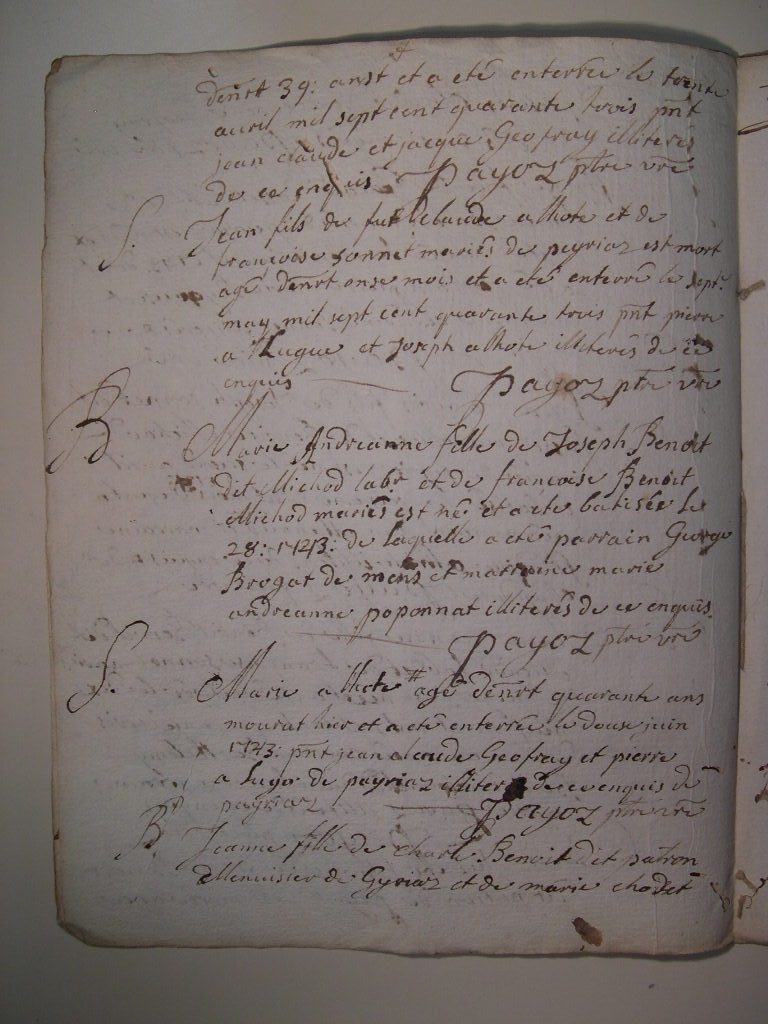 d'enrt 39: anst et a eté enterrée le trente
avril mil sept cent quarante trois pnt
jean claude et jacque Geofray illiterés
de ce enquis Payoz ptre vre
S. Jean fils de fut Claude alhote et de
francoise Sonnet mariés de peyriaz est mort
agé d'enrt onse mois et a eté enterré le sept.
may mil sept cent quarante trois pnt pierre
a Lugue et Joseph alhote illiterés de ce
enquis Payoz ptre vre
B Marie Andreanne fille de Joseph Benoit
dit Michod labr et de francoise Benoit
Michod mariés est née et a eté batisée le
28: 1743: de laquelle a eté parrain George
Brogat de mens et marraine marie
andreanne poponnat illiterés de ce enquis.
Payoz ptre vre
S. Marie alhote # agé d'enrt quarante ans
mourut hier et a eté enterrée le douse juin
1743: pnt jean claude Geofray et pierre
a Lugo de peyriaz illiterés de ce enquis de
payriaz Payoz ptre vre
B Jeanne fille de Charle Benoit dit patron
Menuisier de Gyriaz et de marie chodet